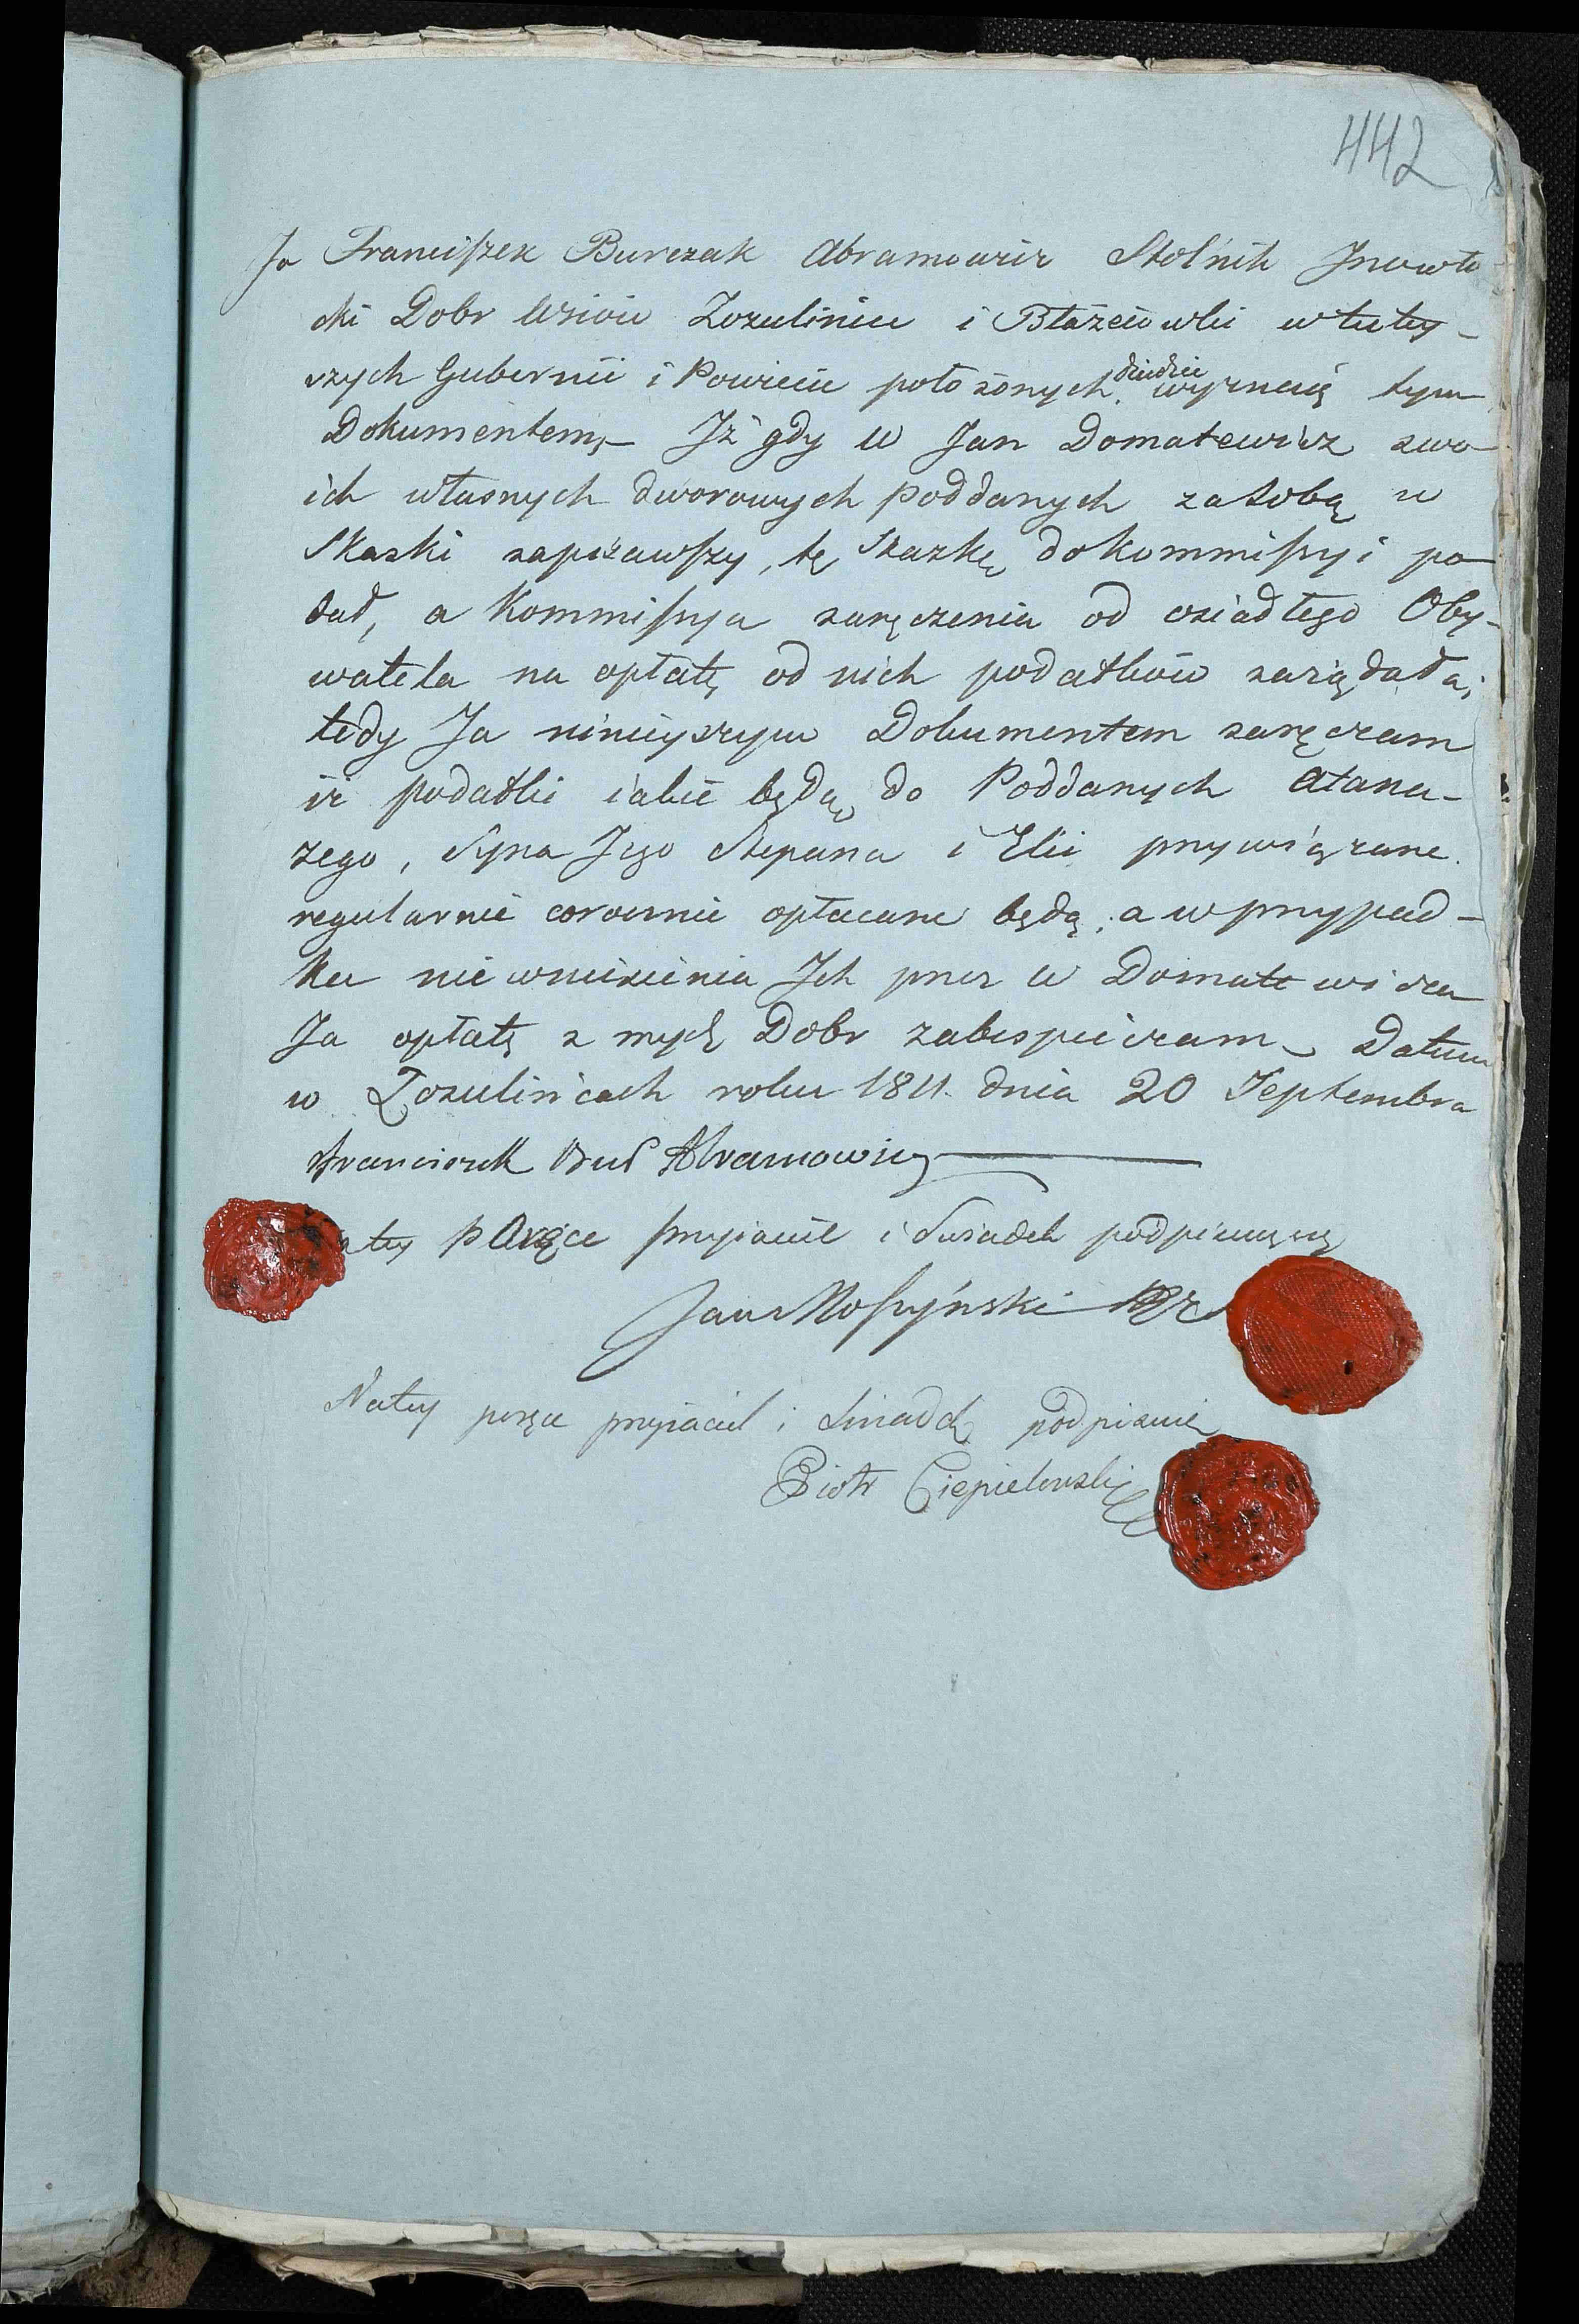 442
Ja Franciſzek Burczak Abramowicz Stolnik Inowło-
cki Dobr Wsiów Zozuliniec i Błażeiówki w tutey-
szych Gubernii i Powiecie położonych dziedzic wyznaię tym
Dokumentem, Iż gdy W Jan Domatewicz swo-
ich własnych dworowych poddanych za sobą w
Skaski zapisawſzy, tę Skazkę do Kommiſsyi po-
dał, a Kommiſsya zaręczenia od osiadłego Oby-
watela na opłatę od nich podatków zarządała;
tedy Ja ninieyszym Dokumentem zaręczam
iż podatki iakie będą do Poddanych Atana-
zego, Syna Jego Stepana i Elii przywiązane
regularnie corocznie opłacane będą, a w przypad-
ku nie wniesienia Ich przez W Domatewicza
Ja opłatę z mych Dobr zabespieczam. Datum
w Zozulińcach roku 1811 dnia 20 Septembra
Franciszek Bur Abramowicz
tey Poręce przyiaciel i Swiadek podpisuię się
Jan Moſzyński
Na tey poręce przyiaciel i Swiadek podpisuię
Piotr Ciepielowski